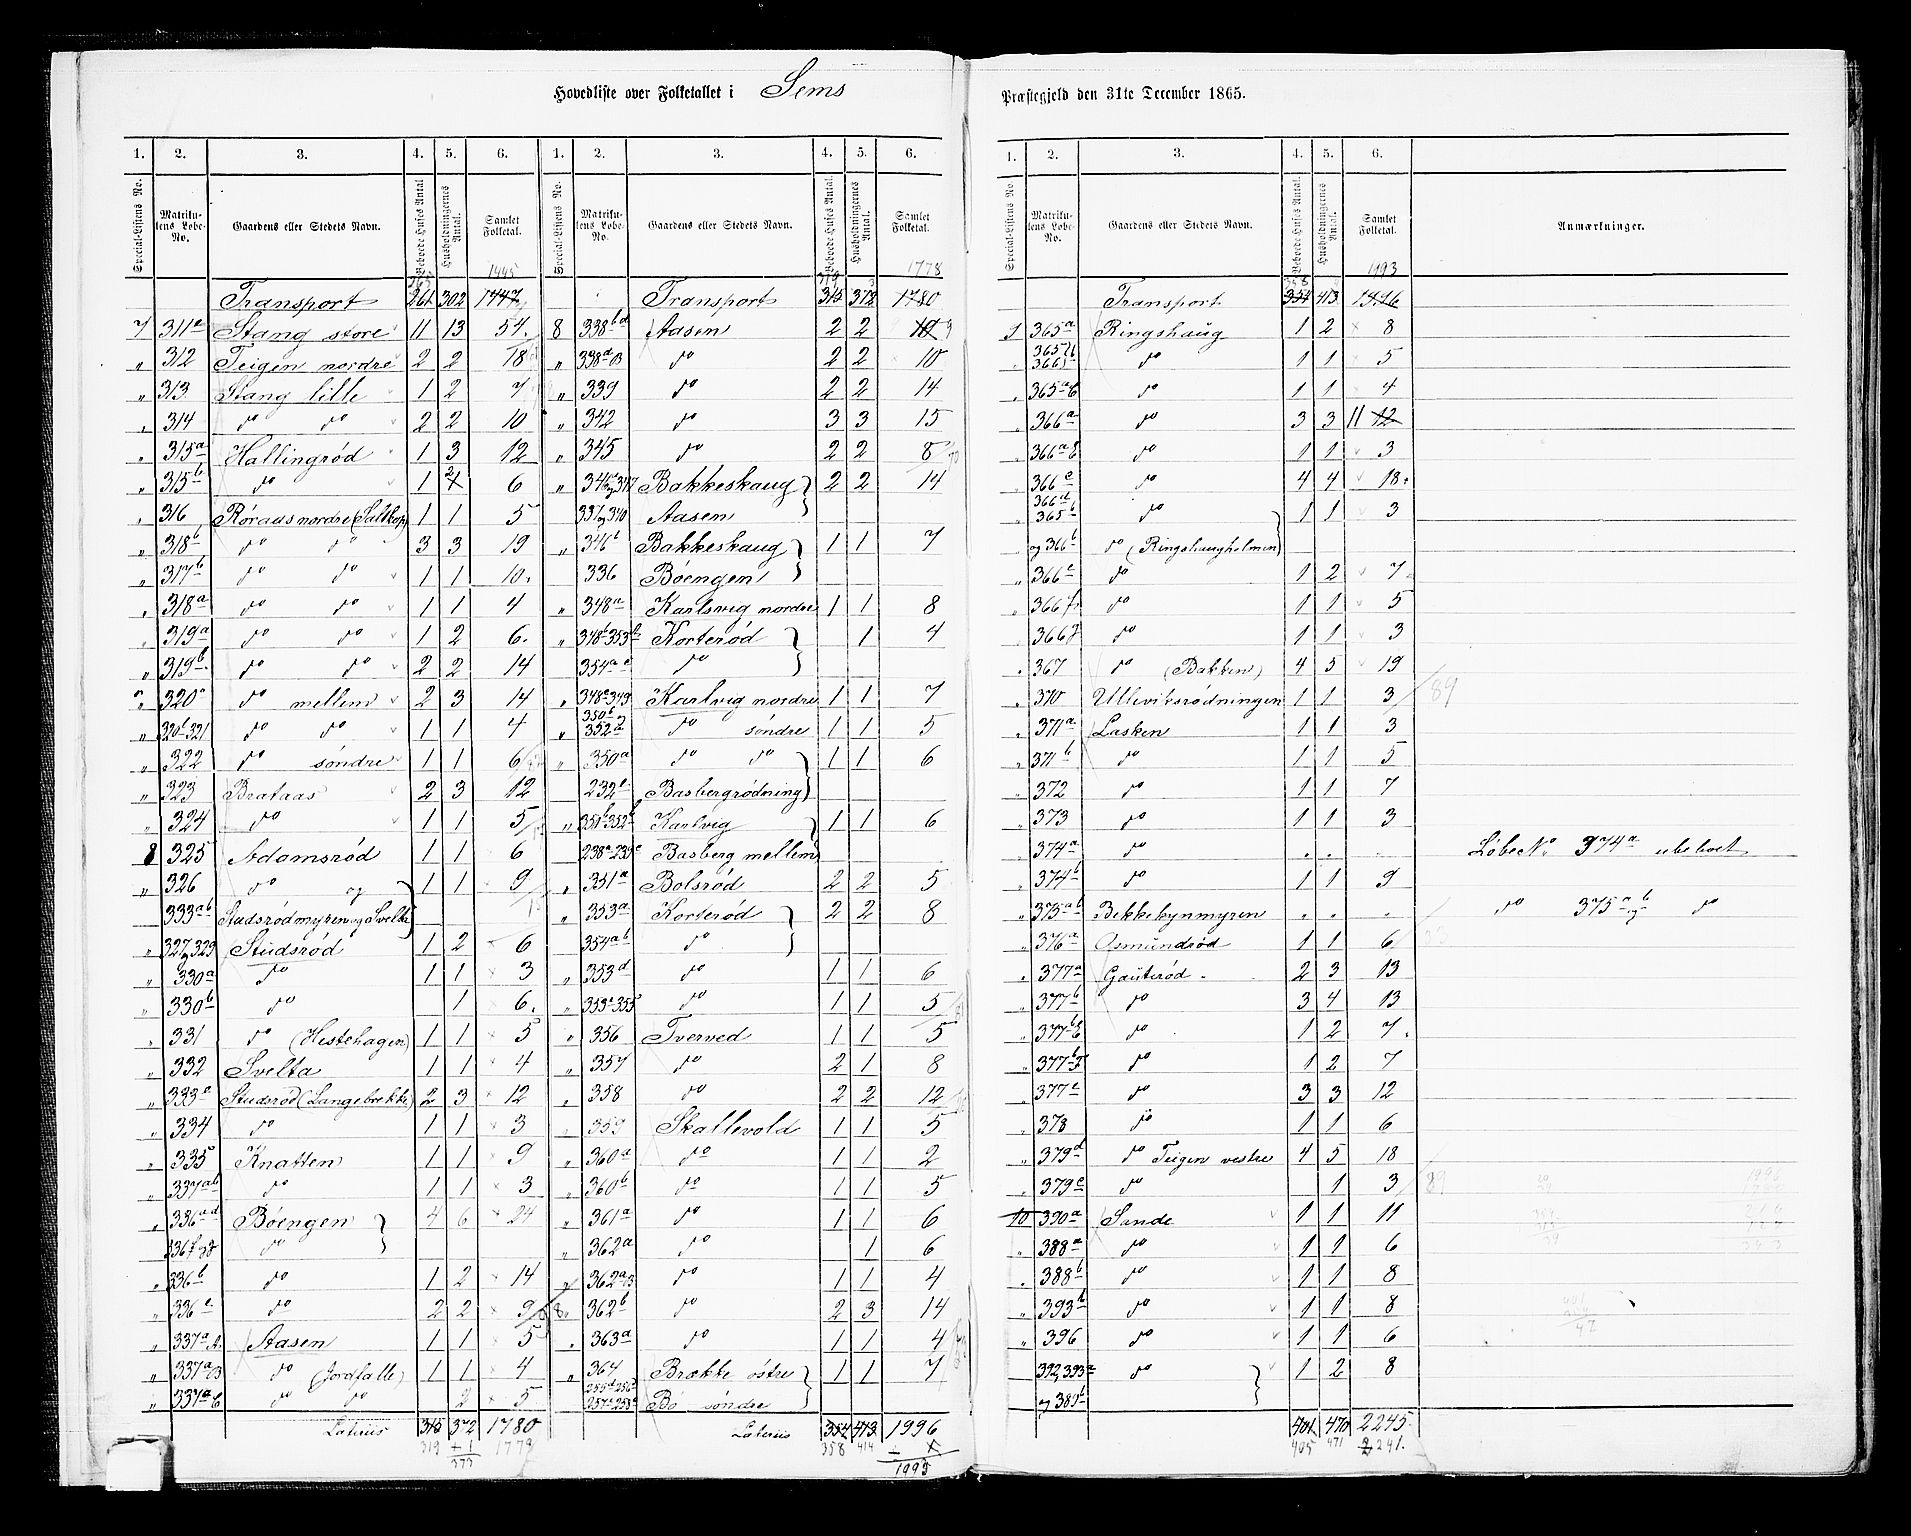 Hovedliste over Folketallet i Sems
Præstegjeld den 31te December 1865.
1. 2. 3. 4. 5. 6. 1. 2. 3. 4. 5. 6.
Special-Listens No. Matrikulens Løbe-No. Gaardens eller Stedets Navn. Beboede Huses Antal. Husholdningernes Antal. Samlet Folketal. Special-Listens No. Matrikulens Løbe-No. Gaardens eller Stedets Navn. Beboede Huses Antal. Husholdningernes Antal. Samlet Folketal.
1445
Transport 261 302 1447
7 311a Stang store 11 13 54
" 312 Teigen nordre 2 2 18
" 313 Stang lille 1 2 7
" 314 do do 2 2 10
" 315a Hallingrød 1 3 12
" 315b do 1 2 6
" 316 Røraas nordre (Saltkop) 1 1 5
" 318b do do 3 3 19
" 317b do do 1 1 10
" 318a do do 1 1 4
" 319a do do 1 2 6
" 319b do do 2 2 14
" 320a do mellem 2 3 14
" 320b-321 do do 1 1 4
" 322 do søndre 1 1 6
" 323 Brataas 2 3 12
" 324 do 1 1 5
8 325 Adamsrød 1 1 6
" 326 do og 1 1 9
333ab Studsrødmyren og Svelta
" 327og329 Studsrød 1 2 6
" 330a do 1 1 3
" 330b do 1 6
" 331 do (Hestehagen) 1 1 5
" 332 Svelta 1 1 4
" 333c Studsrød (Langebrekke) 2 3 12
" 334 do 1 1 3
" 335 Knatten 1 1 9
" 337ab do 1 1 3
" 336ad Bøengen 4 6 24
336f do
" 336b do 1 2 14
" 336c do 2 2 9
" 337a A. Aasen 1 1 5
" 337a B do (Jordfalle) 1 1 4
" 337a C do do 2 5
Lateris 315 372 1780
319 +1 1779
373
1778
Transport 315 372 1780
8 338bd Aasen 2 2 10 9
" 338a B do 2 2 10
" 339 do 2 2 14
" 342 do 3 3 15
" 345 do 2 2 8
" 346og347 Bakkeskaug 2 2 14
337og340 Aasen
" 346b Bakkeskaug 1 1 7
336 Bøengen
" 348a Karlsvig nordre 1 1 8
" 348b-353b Korterød 1 4
354ac do
" 348c-349 Karlvig nordre 1 1 7
" 350b 352a do søndre 1 1 5
" 350a do do 1 1 6
232b Basbergrødning
" 351b-352b Karlvig 1 1 6
238a-239c Basberg mellem
" 351a Bolsrød 2 2 5
" 353a Korterød 2 2 8
354ab do
" 353d do 1 1 6
" 353c-355 do 1 1 5
" 356 Tverved 1 1 5
" 357 do 2 1 8
" 358 do 2 2 12
" 359 Skallevold 1 1 5
" 360a do 1 1 2
" 360b do 1 1 5
" 361a do 1 1 6
" 362a do 1 6
" 362a B do 1 1 4
8 362b do 2 3 14
" 363a do 1 1 4
" 364 Brække østre 1 1 7
Bø søndre
Lateris 354 413 1996
358 414
1993
1. 2. 3. 4. 5. 6.
Special-Listens No. Matrikulens Løbe-No. Gaardens eller Stedets Navn. Beboede Huses Antal. Husholdningernes Antal. Samlet Folketal. Anmærkninger.
1993
Transport 354 413 1996
9 365a Ringshaug 1 2 8
do 1 1 5
" 365a C do 1 1 4
" 366a do 3 3 11 12
" 366a E do 1 1 3
" 366c do 4 4 18
366d 365b do 1 1 3
og 366b do (Ringshaugholmen)
" 366e do 1 2 7
" 366f do 1 1 5
" 366g do 1 1 3
" 367 do (Bakken) 4 5 19
" 370 Ulleviksrødningen 1 1 3 89
" 371a Lasken 1 1 3
" 371b do 1 1 5
" 372 do 1 1 7
" 373 do 1 1 3
" 374a do " " " Løbe No. 374a ubeboet
" 374b do 1 1 9
" 375ab Bekkekynmyren " " " do 375a og b do
" 376a Osmundrød 1 1 6
" 377a Gauterød 2 3 13
" 377b do 3 4 13
" 377b E do 1 2 7
" 377b F do 1 2 7
" 377c do 3 3 12
" 378 do 1 1 6
" 379d do Teigen vestre 4 5 18
" 379c do 1 3 89
10 390a Sande 1 1 11
" 388a do 1 1 6
" 388b do 1 1 8
" 393b do 1 1 8
" 396 do 1 1 6
392,393a do 1 2 8
og 389b
401 470 2245
405 471 2241